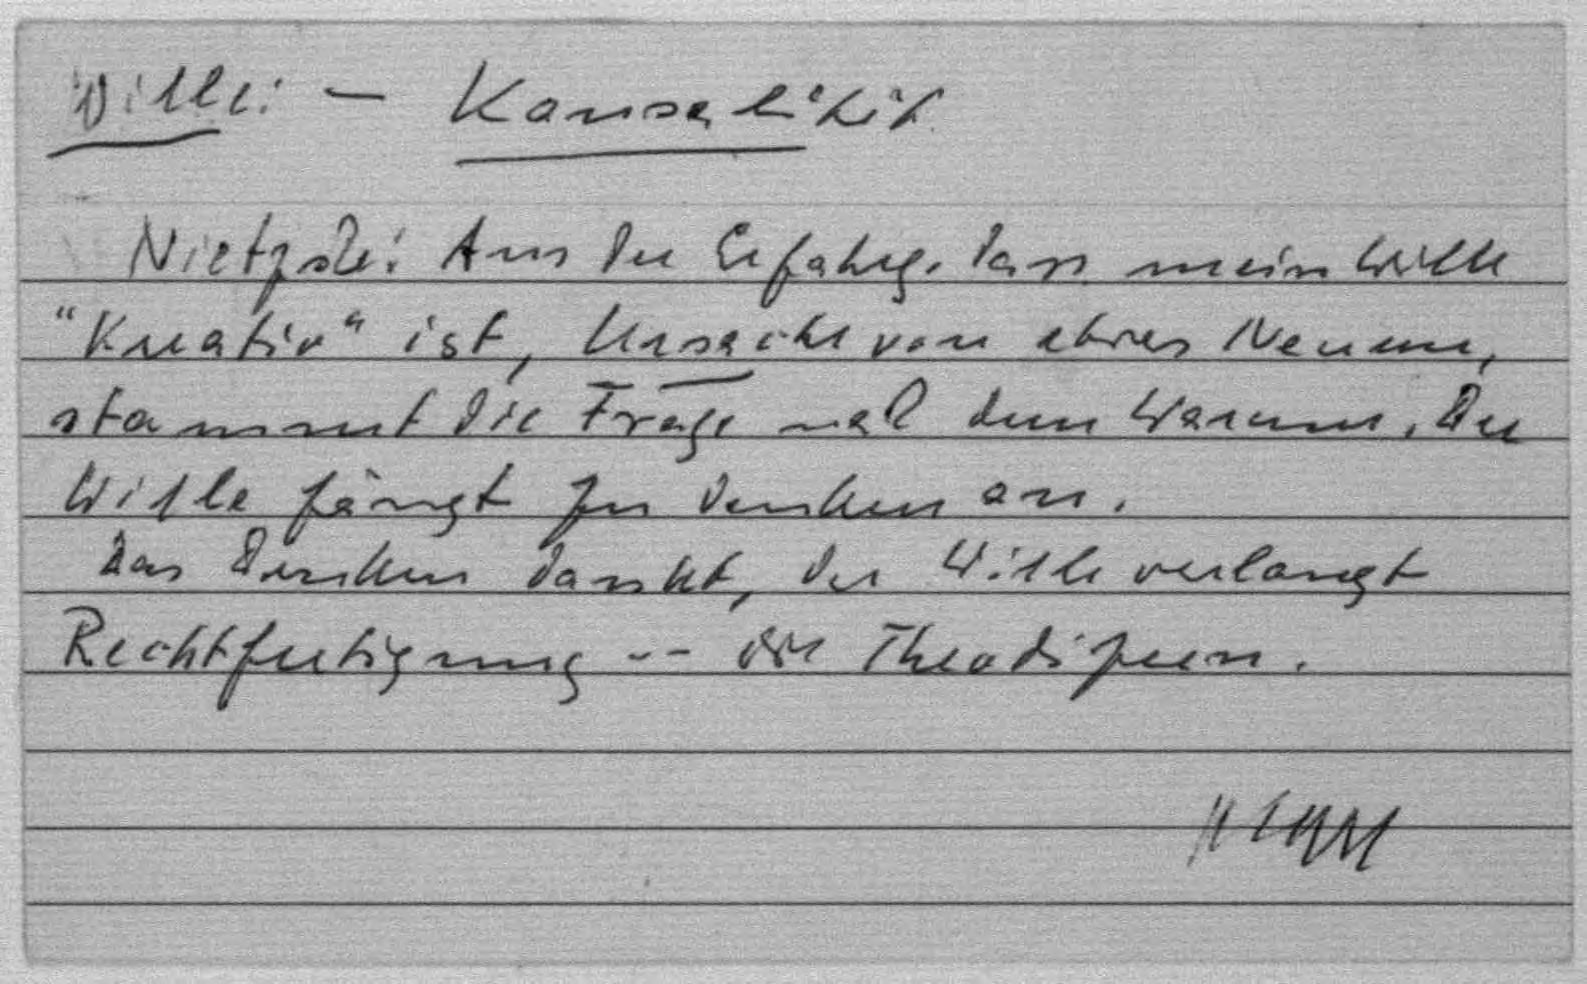 Wille: — Kausalität
Nietzsche: Aus der Erfahrg. dass mein Wille
"Kreativ" ist, Ursache von etwas Neuem,
stammt die Frage nach dem Warum. Der
Wille fängt zu denken an.
Das Denken dankt, der Wille verlangt
Rechtfertigung -- die Theodizeen.